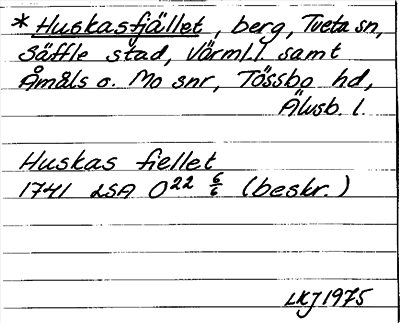 * Huskasfjället, berg, Tveta sn,
Säffle stad, Värml. l. samt
Åmåls o. Mo snr, Tössbo hd,
Älvsb. l.
Huskas fiellet
1741 LSA O22 6/6 (beskr.)
LKJ 1975